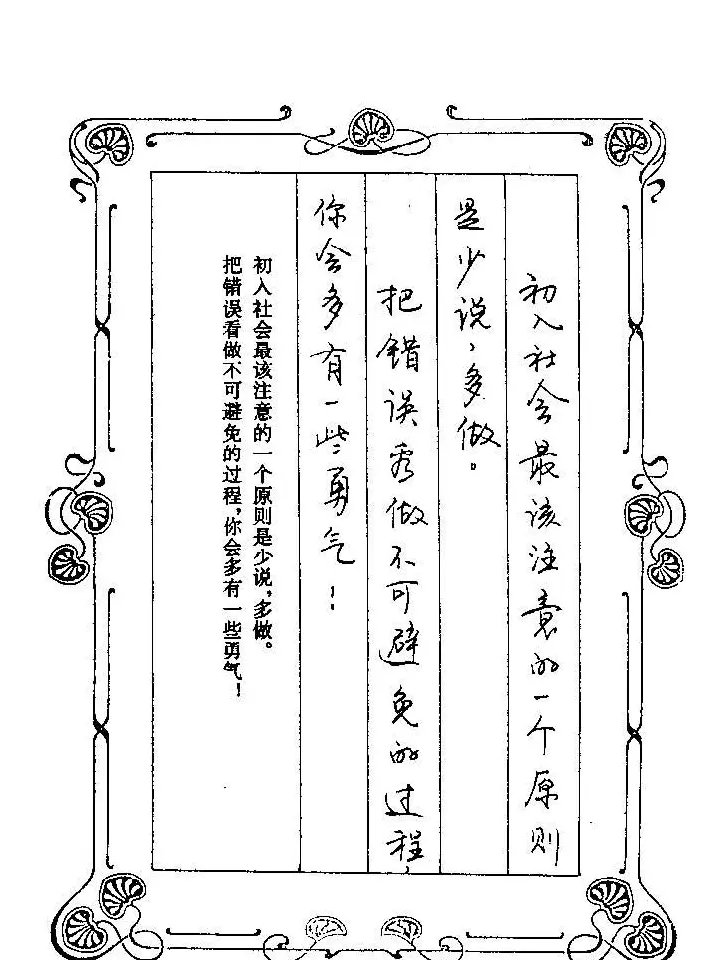 初入社会最该注意的一个原则
是少说，多做。
把错误看做不可避免的过程，
你会多有一些勇气！
初入社会最该注意的一个原则是少说，多做。
把错误看做不可避免的过程，你会多有一些勇气！